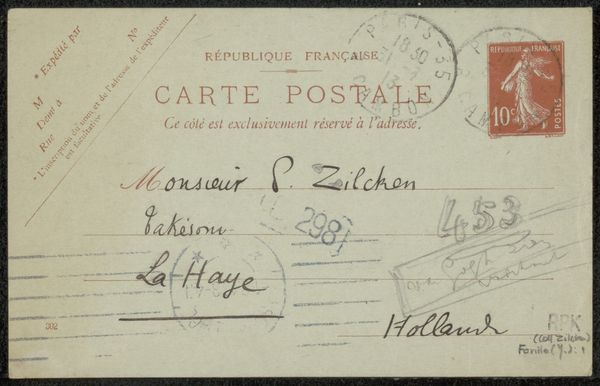 RÉPUBLIQUE FRANÇAISE
CARTE POSTALE
Ce côté est exclusivement réservé à l'adresse.
* Expédié par
No
M
Demt à
Rue
* L'inscription du nom et de l'adresse de l'expéditeur
est facultative
PARIS-35
18 30
RÉPUBLIQUE FRANÇAISE
10c
POSTES
Monsieur P. Zilcken
298
453
La Haye
Hollande
302
RPK
(Coll. Zilcken)